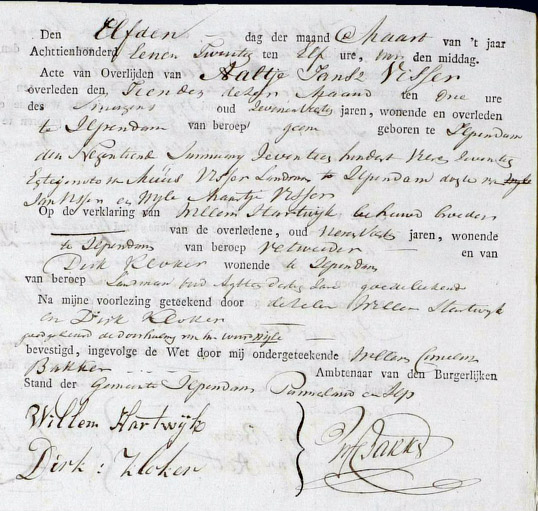 Den Elfden dag der maand Maart van 't jaar
Achttienhonderd eenen Twentig ten Elf ure, van den middag.
Acte van Overlijden van Aaltje Jans Visser
overleden den, Tienden dezer Maand ten drie ure
des Smorgens oud jaren, wonende en overleden
te Ilpendam van beroep geen geboren te Ilpendam
den Negentiende January Seventien hondert Vier Seventig
Visser Landman te Ilpendam
Jan Visser en Maartje Visser
Op de verklaring van Willem Hartwijk behuwd broeder
van de overledene, oud jaren, wonende
te Ilpendam van beroep Veltweider en van
Dirk Kloker wonende te Ilpendam
van beroep Landman oud Agt en Dertig Jaar goede bekende
Na mijne voorlezing geteekend door dezelve Willem Hartwijk
en Dirk Kloker
goedgekeurd de doorhaling van het woord Wyle
bevestigd, ingevolge de Wet door mij ondergeteekende Willem Cornelis
Bakker Ambtenaar van den Burgerlijken
Stand der Gemeente Ilpendam Purmerland en Ilp
Willem Hartwijk
Dirk : Kloker
WCBakker